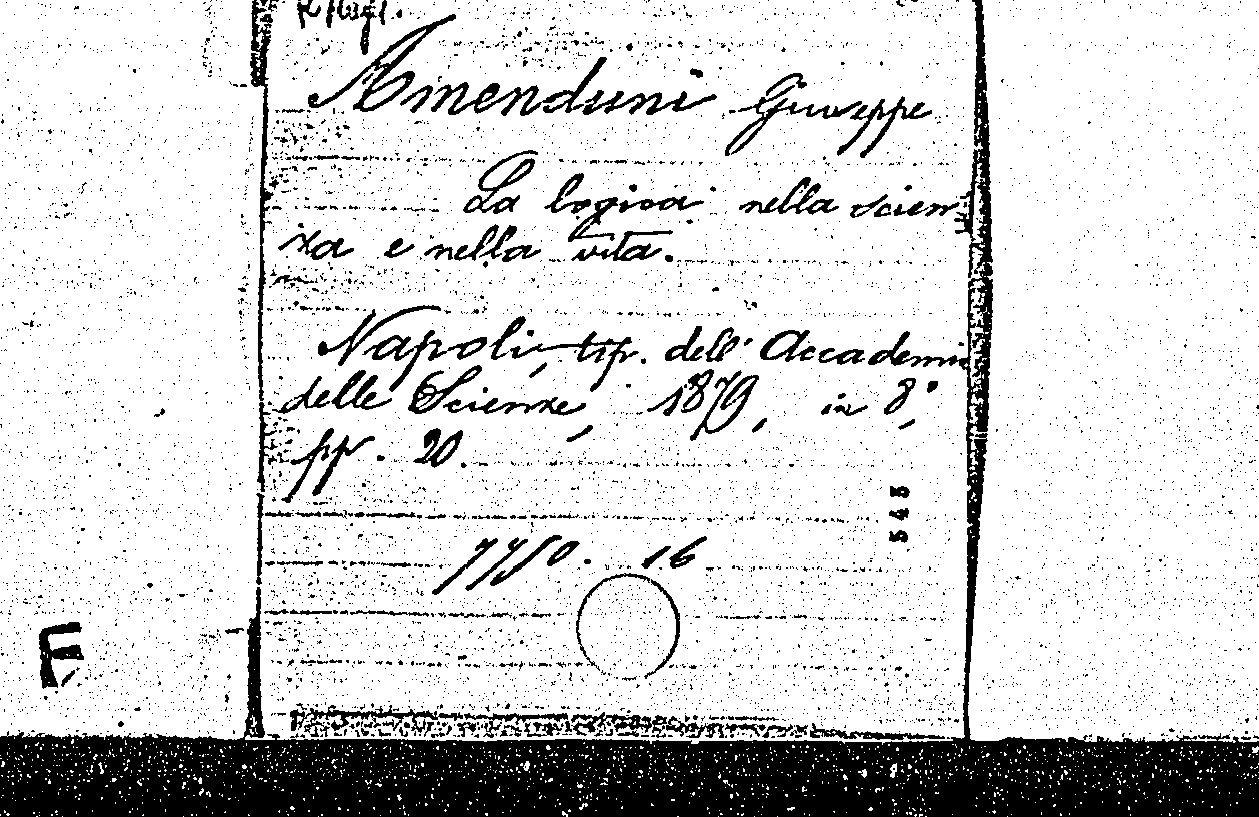 Amenduni Giuseppe
La logica nella scien
za e nella vita.
Napoli, tip. dell' Accademia
delle Scienze, 1879, in 8°,
pp. 20.
543
7750. 16
F